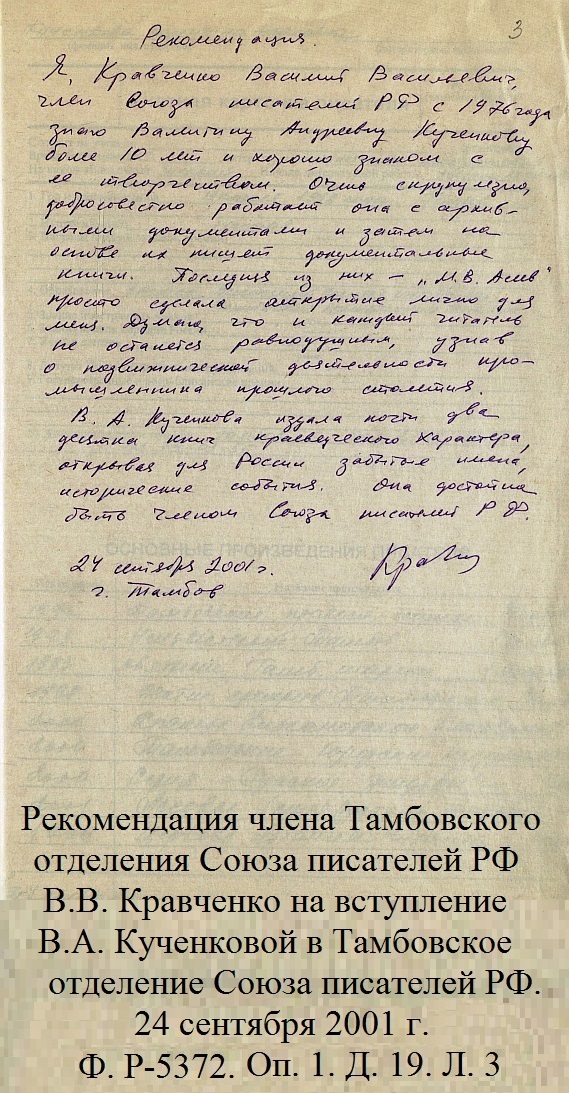 3
Рекомендация.
Я, Кравченко Василий Васильевич,
член Союза писателей РФ с 1976 года
знаю Валентину Андреевну Кученкову
более 10 лет и хорошо знаком с
ее творчеством. Очень скрупулезно,
добросовестно работает она с архив-
ными документами и затем на
основе их пишет документальные
книги. Последняя из них – „М.В. Асеев“
просто сделала открытие лично для
меня. Думаю, что и каждый читатель
не останется равнодушным, узнав
о подвижнической деятельности про-
мышленника прошлого столетия.
В. А. Кученкова издала почти два
десятка книг краеведческого характера,
открывая для России забытые имена,
исторические события. Она достойна
быть членом Союза писателей РФ.
24 сентября 2001 г.
г. Тамбов
ОСНОВНЫЕ ПРОИЗВЕДЕНИЯ
Рекомендация члена Тамбовского
отделения Союза писателей РФ
В.В. Кравченко на вступление
В.А. Кученковой в Тамбовское
отделение Союза писателей РФ.
24 сентября 2001 г.
Ф. Р-5372. Оп. 1. Д. 19. Л. 3